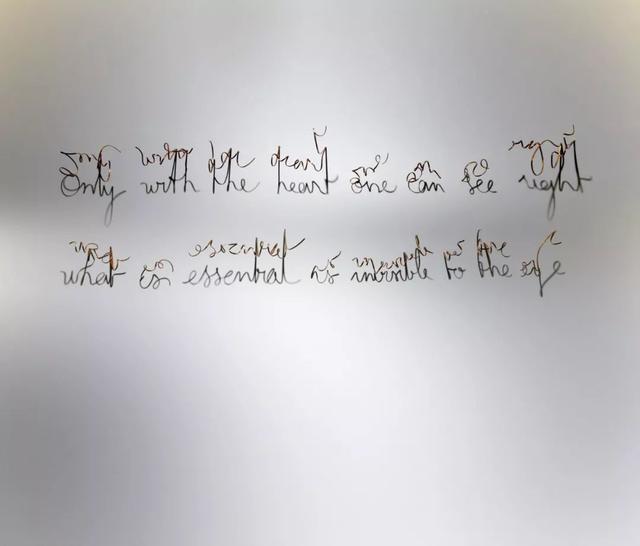 Only with the heart one can see right
what is essential is invisible to the eye